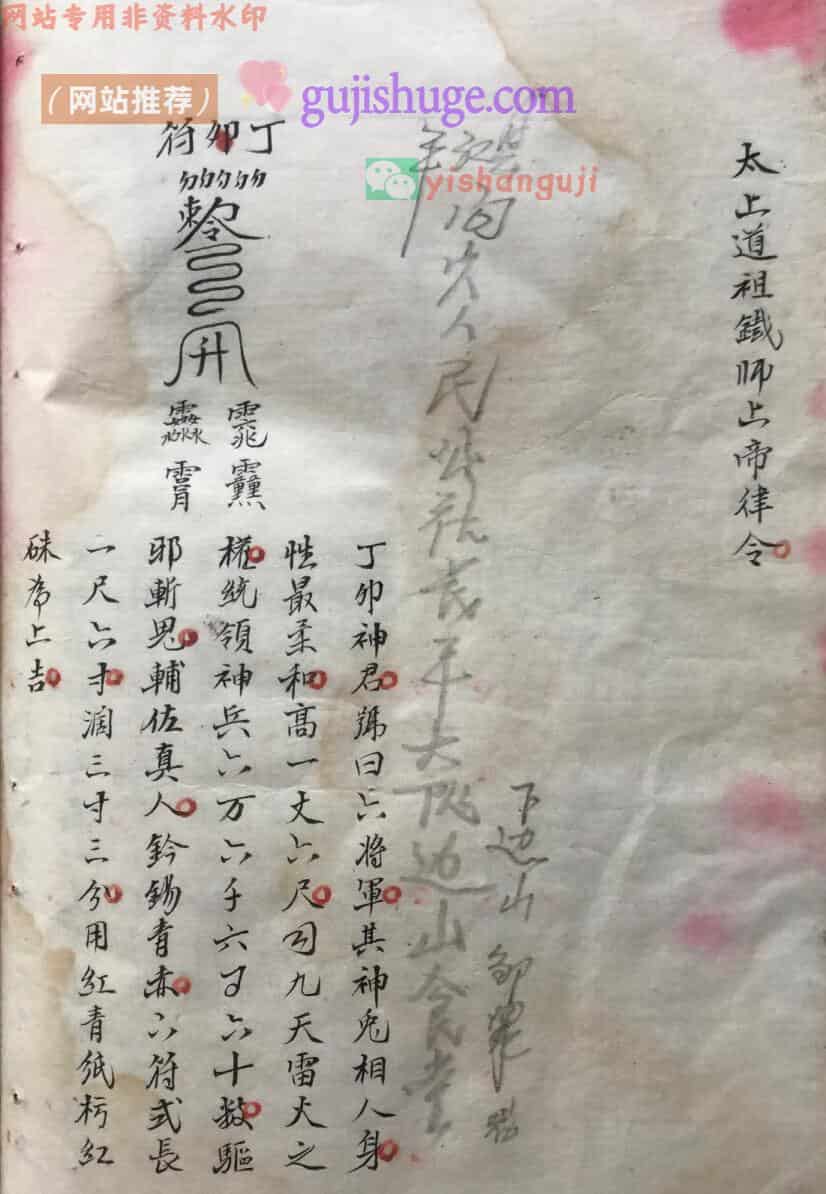 网站专用非资料水印
（网站推荐）
gujishuge.com
yishanguji
太上道祖鐵师上帝律令
人民
大队边山食堂
下边山 邹
丁卯符
勅令
升
丁卯神君號曰六将軍其神兔相人身
性最柔和高一丈六尺司九天雷火之
權統領神兵六万六千六百六十救驅
邪斬鬼輔佐真人鈐錫青赤六符式長
一尺六寸濶三寸三分用紅青紙朽紅
硃為上吉